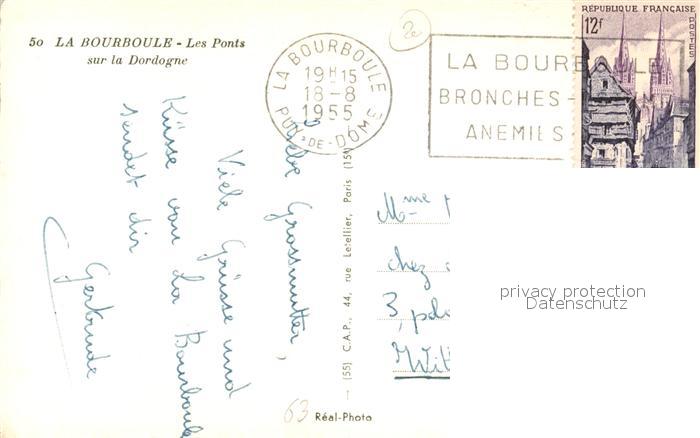 50 LA BOURBOULE - Les Ponts
sur la Dordogne
LA BOURBOULE
19H15
18-8
1955
PUY-DE-DÔME
2e
LA BOURBOULE
BRONCHES-
ANEMIES
RÉPUBLIQUE FRANÇAISE
12F
POSTES
Liebe Grossmutter,
Viele Grüsse und
Küsse von La Bourboule
sendet dir
Gertrude
(55) C.A.P., 44, rue Letellier, Paris (15e)
Mme
chez
3,
privacy protection
Datenschutz
63
Réal-Photo